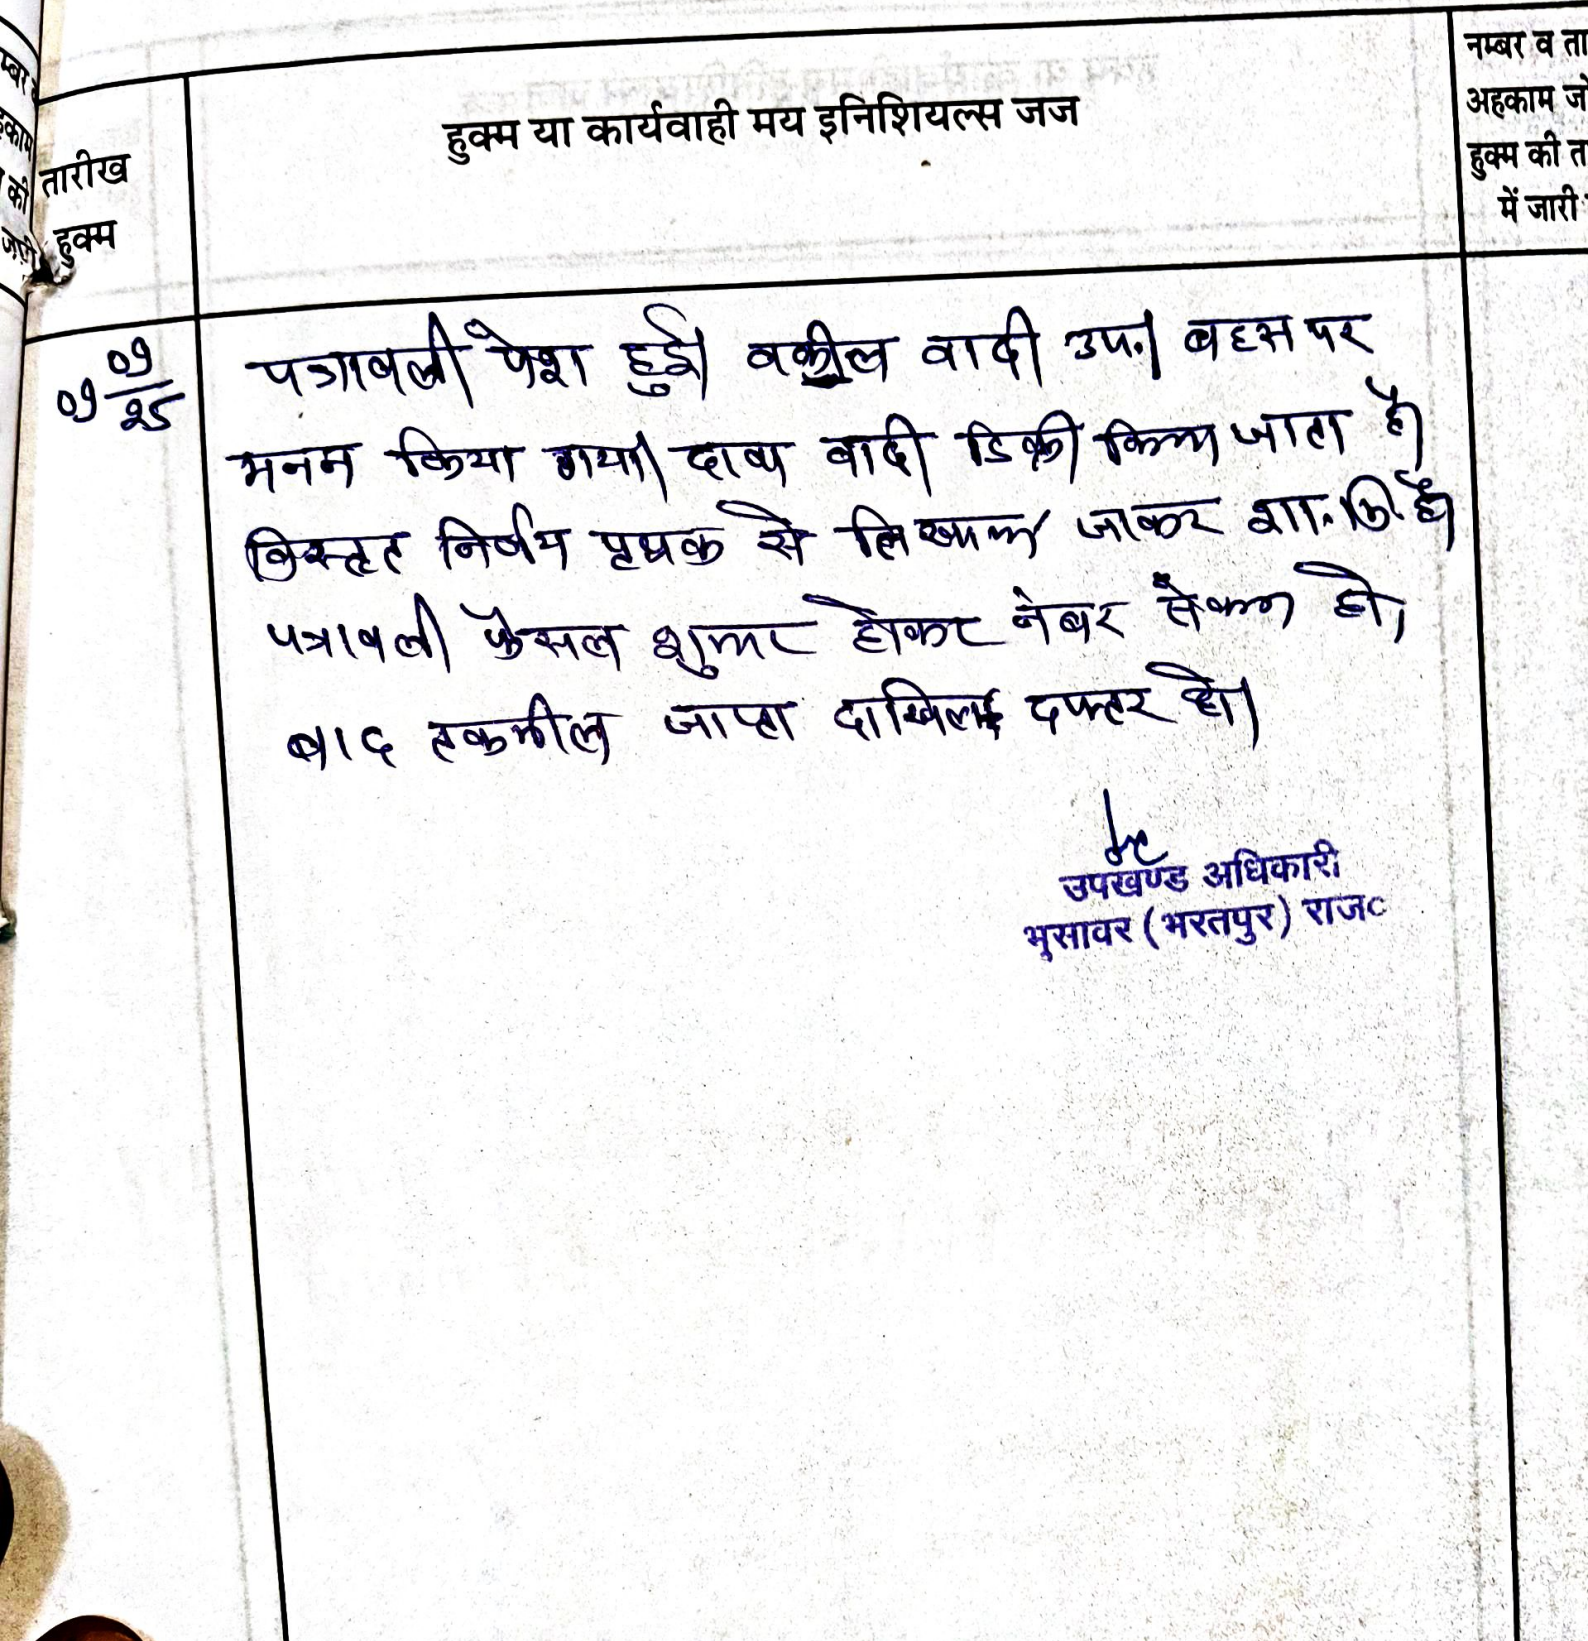 तारीख
हुक्म
हुक्म या कार्यवाही मय इनिशियल्स जज
नम्बर व ता
अहकाम जो
हुक्म की त
में जारी
09 09/25
पत्रावली पेश हुई। वकील वादी उप.। बहस पर
मनन किया गया। दावा वादी डिक्री किया जाता है।
विस्तृत निर्णय पृथक से लिखाया जाकर शा. मि. है।
पत्रावली फैसल शुमार होकर नंबर से कम हो,
बाद तकमील जाप्ता दाखिल दफ्तर हो।
उपखण्ड अधिकारी
भुसावर (भरतपुर) राज०